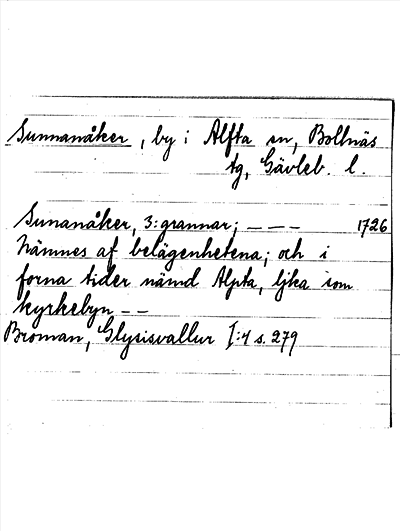 Sunnanåker, by i Alfta sn, Bollnäs
tg, Gävleb. l.
Sunanåker, 3: grannar; – – – 1726
Nämnes af belägenhetena; och i
forna tider nämd Alpta, ljka som
kyrkebyn – –
Broman, Glysisvallur I:4 s. 279